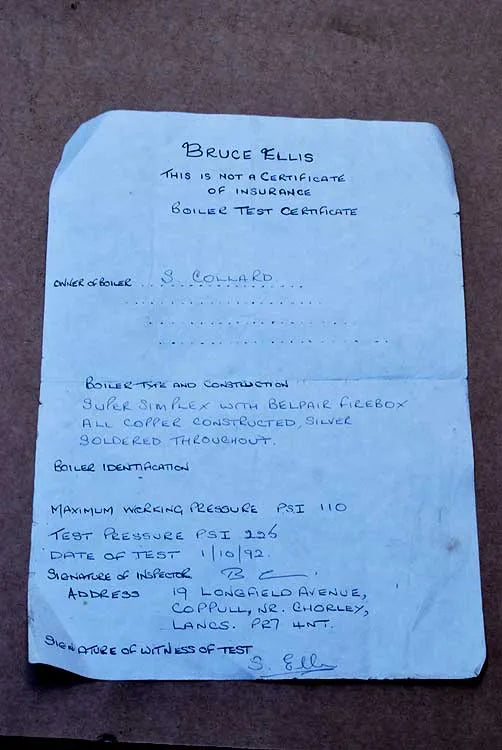 BRUCE ELLIS
THIS IS NOT A CERTIFICATE
OF INSURANCE
BOILER TEST CERTIFICATE
OWNER OF BOILER S. COLLARD
BOILER TYPE AND CONSTRUCTION
SUPER SIMPLEX WITH BELPAIR FIREBOX
ALL COPPER CONSTRUCTED, SILVER
SOLDERED THROUGHOUT.
BOILER IDENTIFICATION
MAXIMUM WORKING PRESSURE PSI 110
TEST PRESSURE PSI
DATE OF TEST 1/10/92.
SIGNATURE OF INSPECTOR
ADDRESS 19 LONGFIELD AVENUE,
COPPULL, NR. CHORLEY,
LANCS. PR7 4NT.
SIGNATURE OF WITNESS OF TEST
S. Ellis